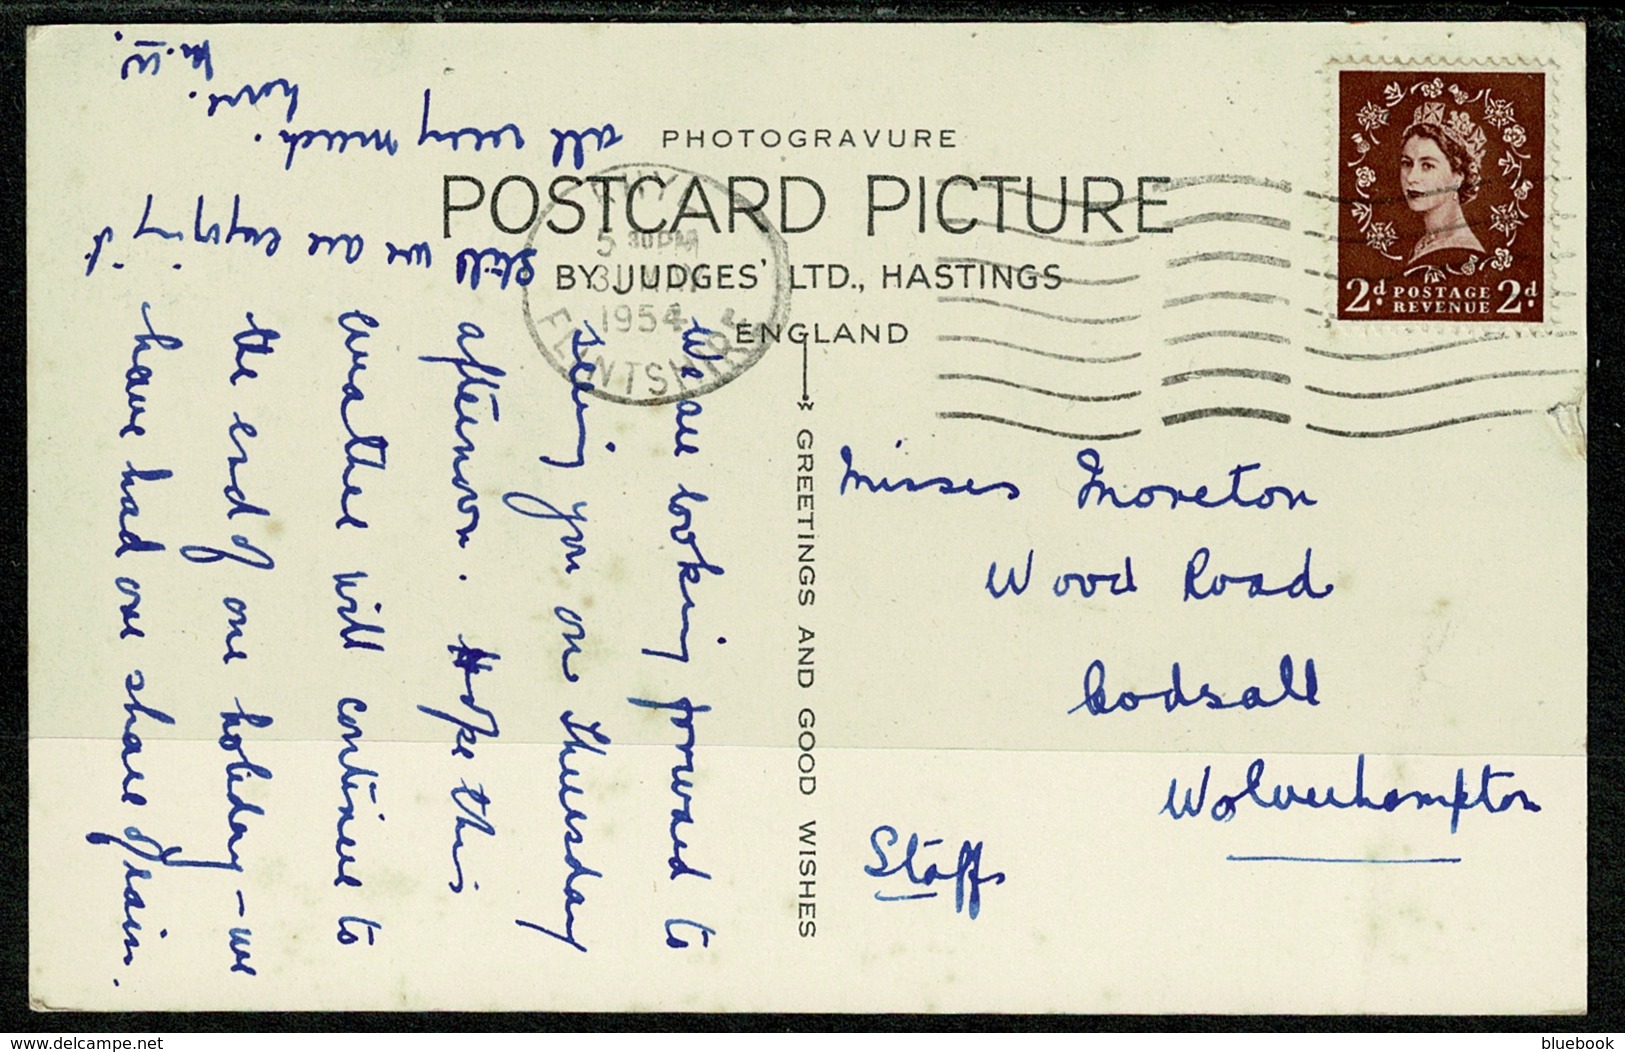 PHOTOGRAVURE
POSTCARD PICTURE
BY JUDGES' LTD., HASTINGS
ENGLAND
GREETINGS AND GOOD WISHES
RHYL
5 30 PM
1954
FLINTSHIRE
2d POSTAGE REVENUE 2d
We are looking forward to
seeing you on Thursday
afternoon. Hope this
weather will continue to
the end of our holiday – we
have had our share of rain.
Still we are enjoying it
all very much.
love.
M.W.
Misses Moreton
Wood Road
Codsall
Wolverhampton
Staffs
delcampe.net
bluebook